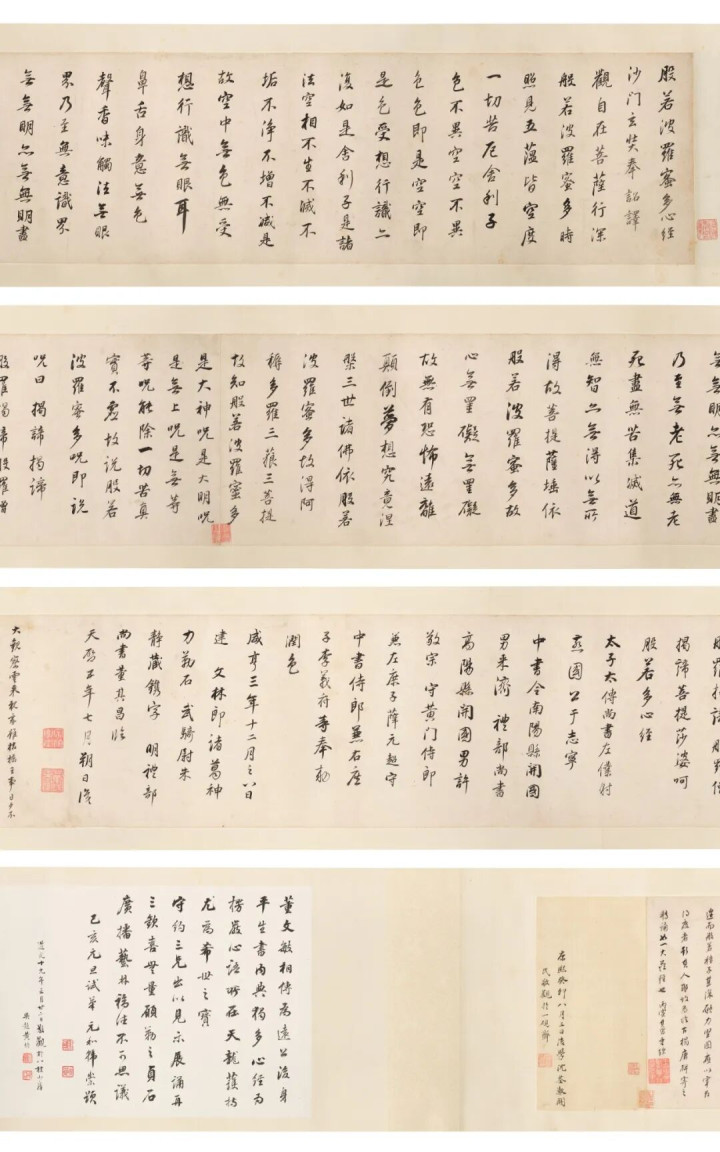 般若波羅蜜多心经
沙门玄奘奉 詔譯
觀自在菩薩行深
般若波羅蜜多時
照見五蕴皆空度
一切苦厄舍利子
色不異空空不異
色色即是空空即
是色受想行識亦
復如是舍利子是諸
法空相不生不滅不
垢不淨不增不减是
故空中無色無受
想行識無眼耳
鼻舌身意無色
聲香味觸法無眼
界乃至無意識界
無無明亦無無明盡
無無明亦無無明盡
乃至無老死亦無老
死盡無苦集滅道
無智亦無得以無所
得故菩提薩埵依
般若波羅蜜多故
心無罣礙無罣礙
故無有恐怖遠離
顛倒夢想究竟涅
槃三世諸佛依般若
波羅蜜多故得阿
耨多羅三藐三菩提
故知般若波羅蜜多
是大神呪是大明呪
是無上呪是無等
等呪能除一切苦真
實不虚故说般若
波羅蜜多呪即说
呪曰揭諦揭諦
般羅揭諦般羅僧
般羅揭諦般羅僧
揭諦菩提莎婆呵
般若多心经
太子太傅尚書左僕射
燕國公于志寧
中書令南陽縣開國
男來濟 禮部尚書
高陽縣開國男許
敬宗 守黄门侍郎
兼左庶子薛元超守
中書侍郎兼右庶
子李義府等奉勅
潤色
咸亨三年十二月之八日
建 文林郎諸葛神
力勒石 武騎尉朱
静藏鐫字 明禮部
尚書董其昌临
天啓五年七月朔日
康熙癸卯八月三日
董文敏相傳為遠公後身
平生書内典獨多心经為
楞嚴心语所在天龍護持
尤為希世之寶
守約三兄出以見示展誦再
三歡喜無量顧勒之貞石
廣播藝林福德不可思議
己亥元旦試筆元和韓崇題